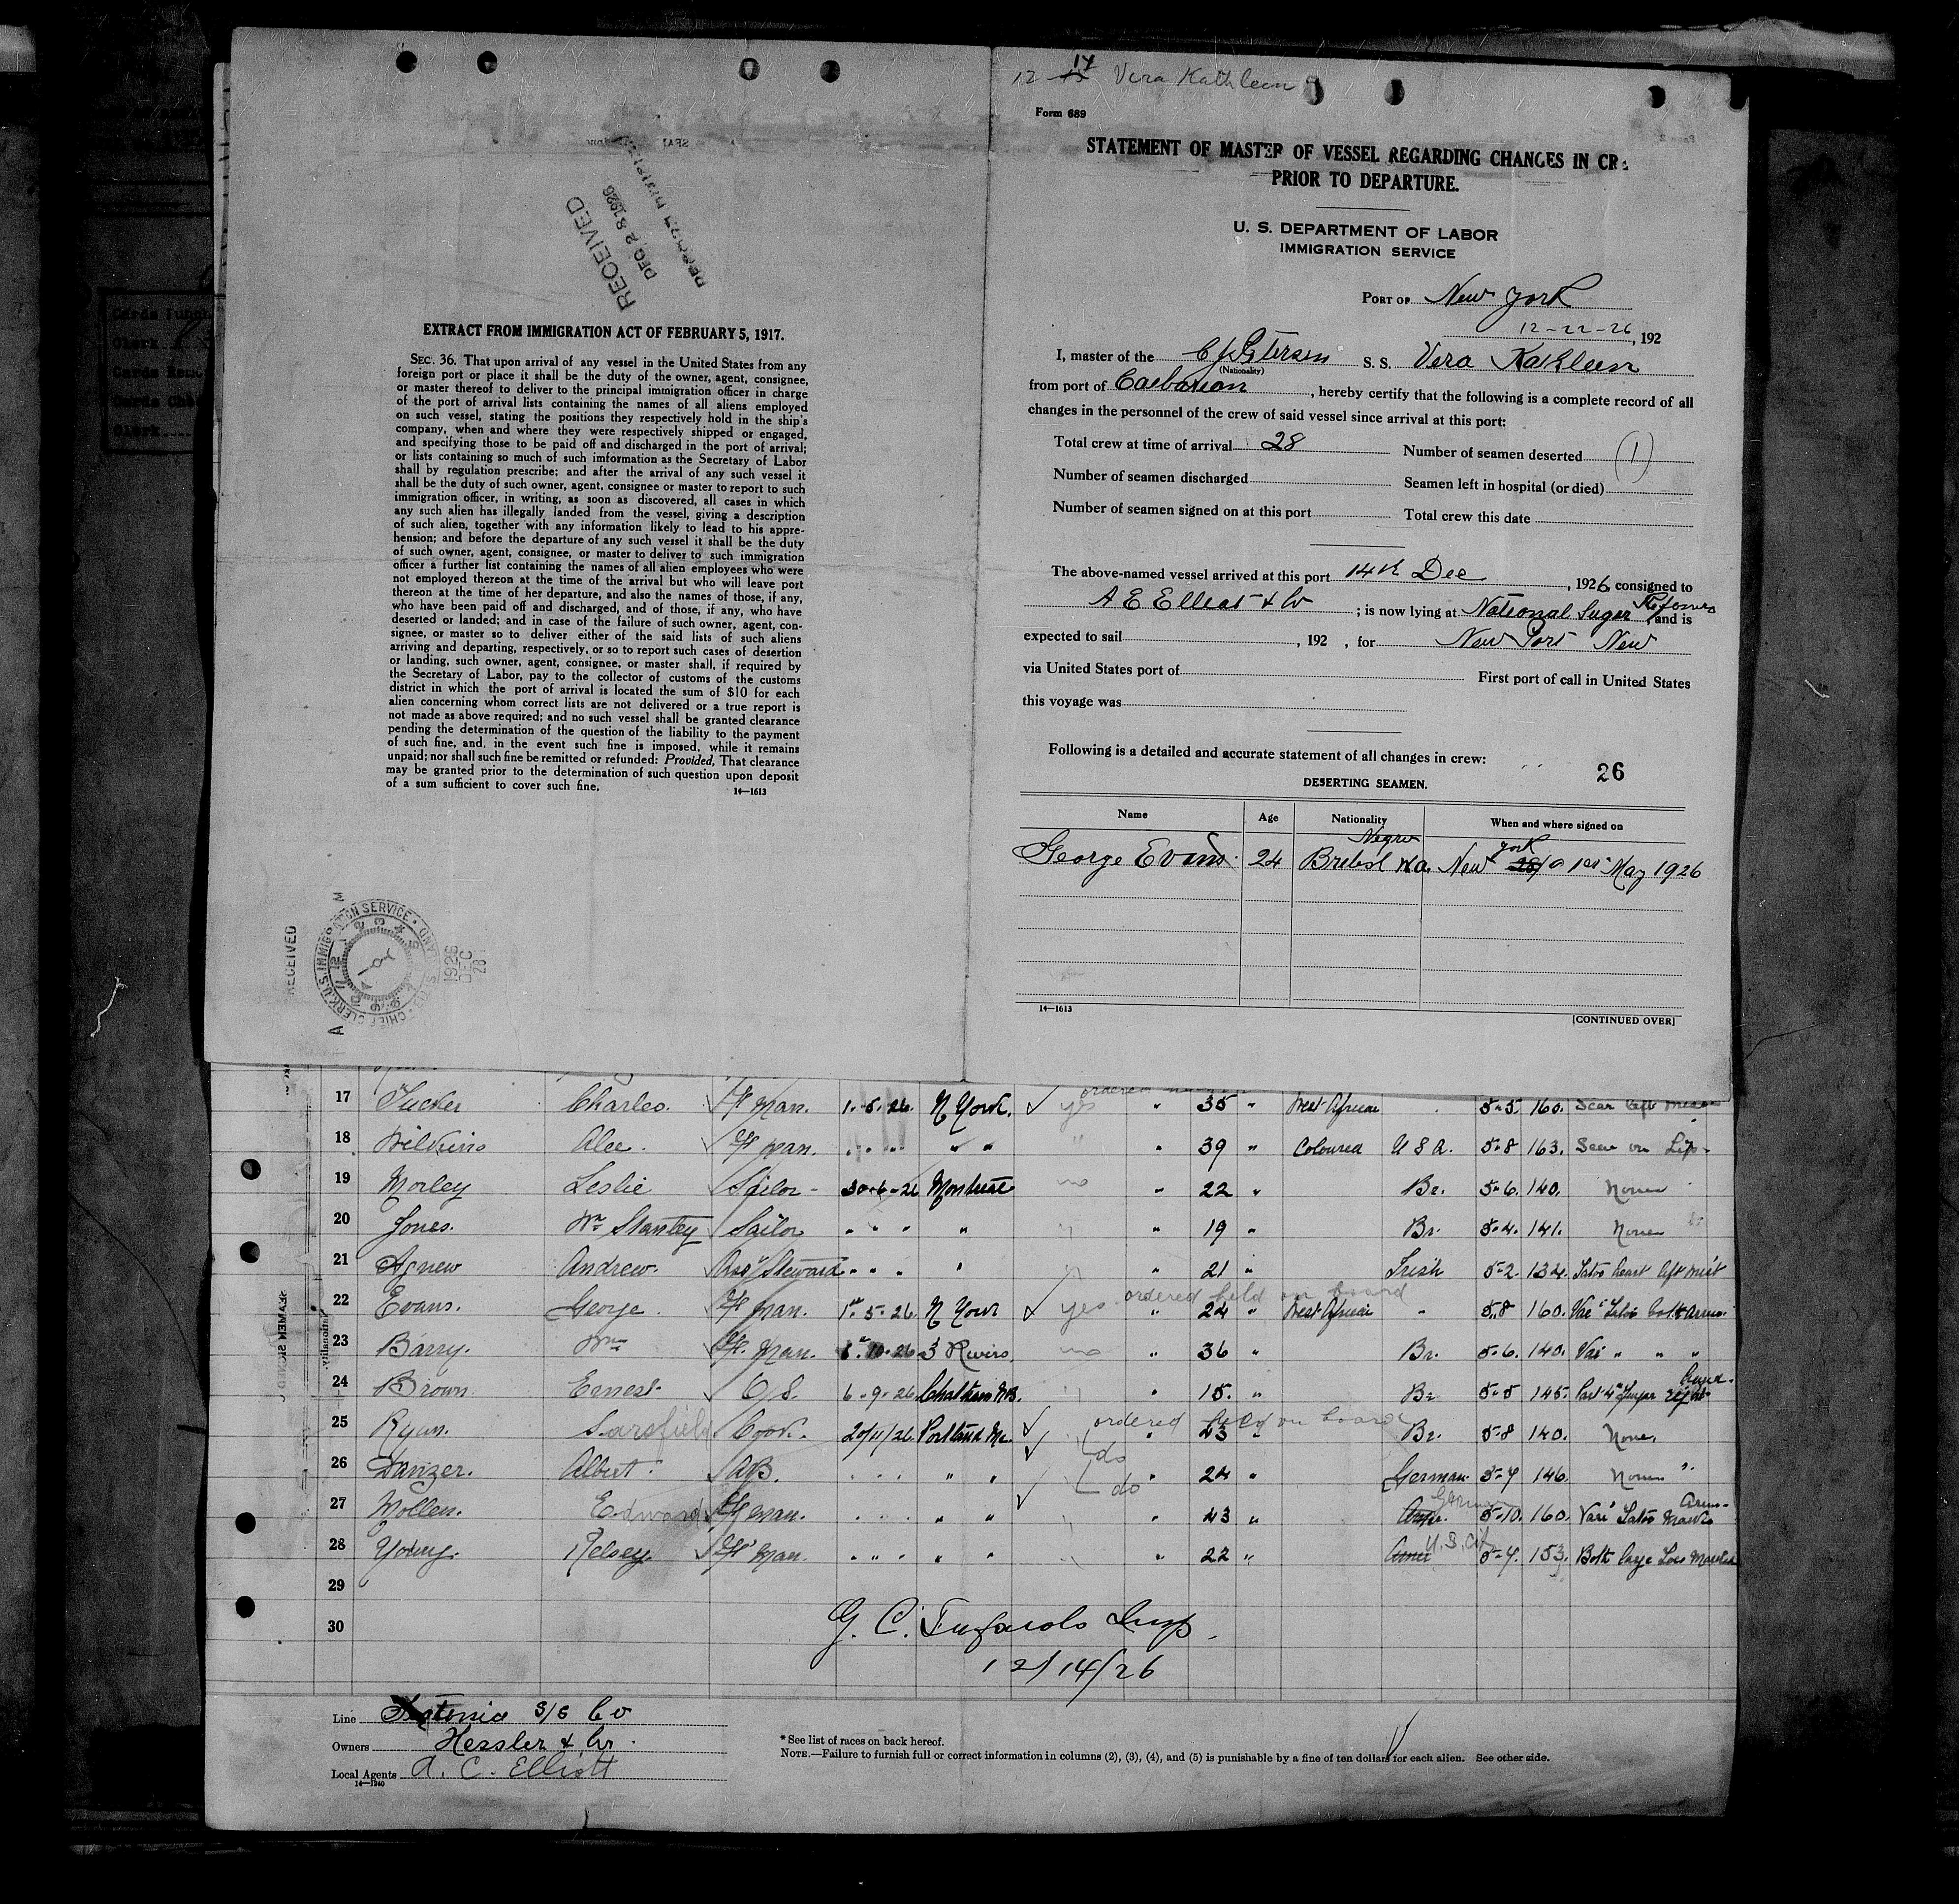 RECEIVED
DEC 28 1926
EXTRACT FROM IMMIGRATION ACT OF FEBRUARY 5, 1917.
SEC. 36. That upon arrival of any vessel in the United States from any
foreign port or place it shall be the duty of the owner, agent, consignee,
or master thereof to deliver to the principal immigration officer in charge
of the port of arrival lists containing the names of all aliens employed
on such vessel, stating the positions they respectively hold in the ship's
company, when and where they were respectively shipped or engaged,
and specifying those to be paid off and discharged in the port of arrival;
or lists containing so much of such imformation as the Secretary of Labor
shall by regulation prescribe; and after the arrival of any such vessel it
shall be the duty of such owner, agent, consignee or master to report to such
immigration officer, in writing, as soon as discovered, all cases in which
any such alien has illegally landed from the vessel, giving a description
of such alien, together with any information likely to lead to his appre-
hension; and before the departure of any such vessel it shall be the duty
of such owner, agent, consignee, or master to deliver to such immigration
officer a further list containing the names of all alien employees who were
not employed thereon at the time of the arrival but who will leave port
thereon at the time of her departure, and also the names of those, if any,
who have been paid off and discharged, and of those, if any, who have
deserted or landed; and in case of the failure of such owner, agent, con-
signee, or master so to deliver either of the said lists of such aliens
arriving and departing, respectively, or so to report such cases of desertion
or landing, such owner, agent, consignee, or master shall, if required by
the Secretary of Labor, pay to the collector of customs of the customs
district in which the port of arrival is located the sum of $10 for each
alien concerning whom correct lists are not delivered or a true report is
not made as above required; and no such vessel shall be granted clearance
pending the determination of the question of the liability to the payment
of such fine, and, in the event such fine is imposed, while it remains
unpaid; nor shall such fine be remitted or refunded: Provided, That clearance
may be granted prior to the determination of such question upon deposit
of a sum sufficient to cover such fine.
14—1613
RECEIVED
CHIEF CLERK, U.S. IMMIGRATION SERVICE
1926 DEC 28
12 14 Vera Kathleen
Form 689
STATEMENT OF MASTER OF VESSEL REGARDING CHANGES IN CR
PRIOR TO DEPARTURE.
U. S. DEPARTMENT OF LABOR
IMMIGRATION SERVICE
PORT OF New York
12-22-26, 192
I, master of the C J Petersen S. S. Vera Kathleen
(Nationality)
from port of Caebarian, hereby certify that the following is a complete record of all
changes in the personnel of the crew of said vessel since arrival at this port:
Total crew at time of arrival 28 Number of seamen deserted (1)
Number of seamen discharged Seamen left in hospital (or died)
Number of seamen signed on at this port Total crew this date
The above-named vessel arrived at this port 14th Dec, 1926 consigned to
A E Elleot & Co; is now lying at National Sugar and is
expected to sail , 192 , for New Port New
via United States port of First port of call in United States
this voyage was
Following is a detailed and accurate statement of all changes in crew:
26
DESERTING SEAMEN.
Name Age Nationality When and where signed on
George Evans 24 Negro New York 1st May 1926
14—1613
[CONTINUED OVER]
17 Tucker Charles. F Man. 1.5.26. N York. yes " 35 " West African 5-5. 160. Scar left
18 Wilkins Alec. F man. " " " " " " " 39 " Coloured U S A. 5-8 163. Scar on Lip
19 Morley Leslie Sailor 30-6-26 Montreal no " 22 " Br. 5-6. 140. None
20 Jones. Wm Stanley Sailor " " " " " " 19 " Br. 5-4. 141. None
21 Agnew Andrew. Ass Steward " " " " " " 21 " Irish 5-2. 134. Tatoo heart left
ordered held on board
22 Evans. George. F man. 1st 5-26. N York yes " 24 " West African " 5-8 160.
23 Barry. Wm F. Man. 1-10-26 3 Rivers. no " 36 " Br. 5-6. 140. " " "
24 Brown Ernest O S. 6-9-26 Chatham NB. " " 15. " Br 5-5 145.
ordered held on board
25 Ryan. Sarsfield Cook. 20/11/26. Portland Me. " 43 " Br. 5-8 140. None.
do
26 Danzer. Albert. AB. " " " " " " 24 " German 5-7 146. None
do
27 Wollen. Edward F man. " " " " " 43 " German 5-10. 160.
28 Young. Kelsey. F Man. " " " " " " 22 " U.S. Cit 5-7. 153.
29
30
G. C. Insp.
12/14/26
Line S/S Co
Owners Hessler & Co.
Local Agents A. C. Elliott
14—1240
* See list of races on back hereof.
NOTE.—Failure to furnish full or correct information in columns (2), (3), (4), and (5) is punishable by a fine of ten dollars for each alien. See other side.